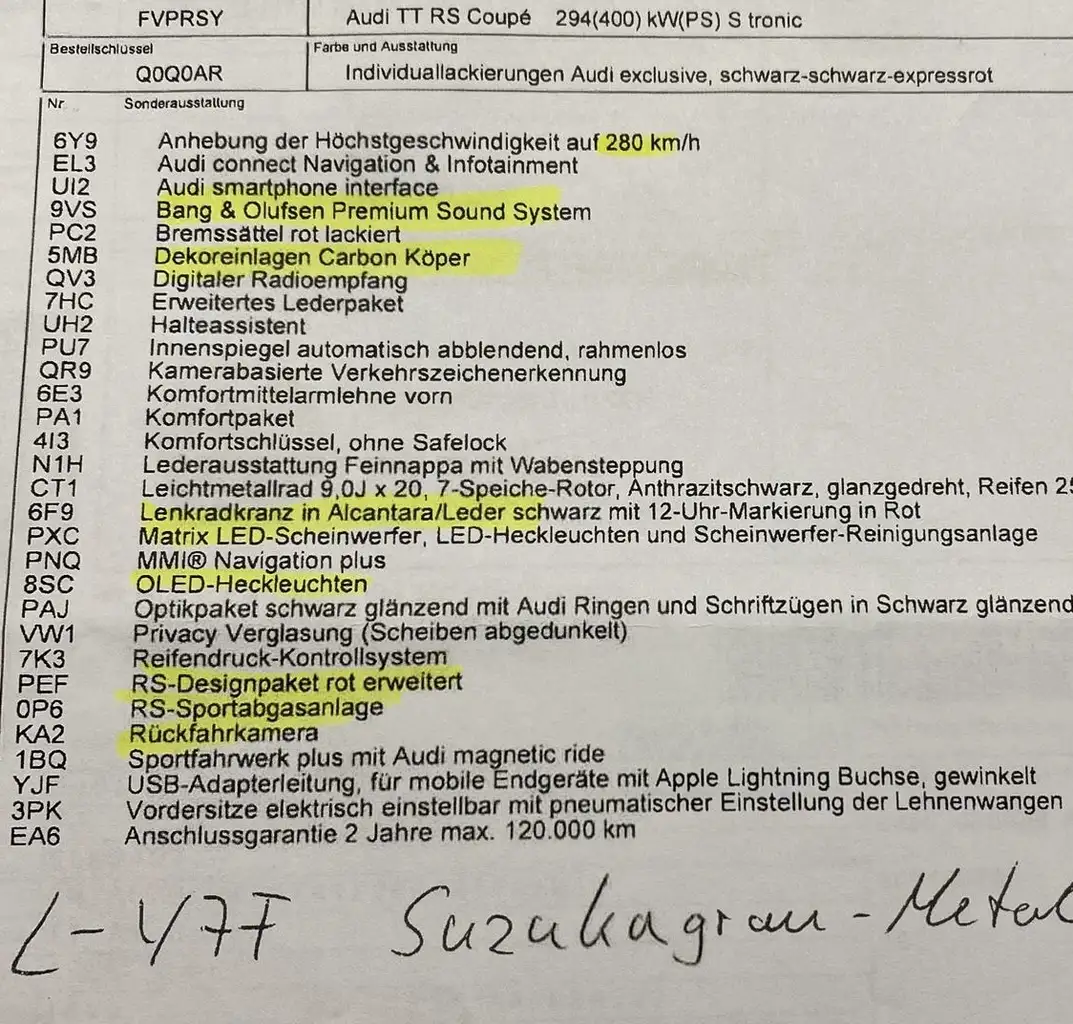 FVPRSY Audi TT RS Coupé 294(400) kW(PS) S tronic
Bestellschlüssel Farbe und Ausstattung
Q0Q0AR Individuallackierungen Audi exclusive, schwarz-schwarz-expressrot
Nr Sonderausstallung
6Y9 Anhebung der Höchstgeschwindigkeit auf 280 km/h
EL3 Audi connect Navigation & Infotainment
UI2 Audi smartphone interface
9VS Bang & Olufsen Premium Sound System
PC2 Bremssättel rot lackiert
5MB Dekoreinlagen Carbon Köper
QV3 Digitaler Radioempfang
7HC Erweitertes Lederpaket
UH2 Halteassistent
PU7 Innenspiegel automatisch abblendend, rahmenlos
QR9 Kamerabasierte Verkehrszeichenerkennung
6E3 Komfortmittelarmlehne vorn
PA1 Komfortpaket
4I3 Komfortschlüssel, ohne Safelock
N1H Lederausstattung Feinnappa mit Wabensteppung
CT1 Leichtmetallrad 9,0J x 20, 7-Speiche-Rotor, Anthrazitschwarz, glanzgedreht, Reifen 25
6F9 Lenkradkranz in Alcantara/Leder schwarz mit 12-Uhr-Markierung in Rot
PXC Matrix LED-Scheinwerfer, LED-Heckleuchten und Scheinwerfer-Reinigungsanlage
PNQ MMI® Navigation plus
8SC OLED-Heckleuchten
PAJ Optikpaket schwarz glänzend mit Audi Ringen und Schriftzügen in Schwarz glänzend
VW1 Privacy Verglasung (Scheiben abgedunkelt)
7K3 Reifendruck-Kontrollsystem
PEF RS-Designpaket rot erweitert
0P6 RS-Sportabgasanlage
KA2 Rückfahrkamera
1BQ Sportfahrwerk plus mit Audi magnetic ride
YJF USB-Adapterleitung, für mobile Endgeräte mit Apple Lightning Buchse, gewinkelt
3PK Vordersitze elektrisch einstellbar mit pneumatischer Einstellung der Lehnenwangen
EA6 Anschlussgarantie 2 Jahre max. 120.000 km
L-Y7F Suzukagrau-Metal